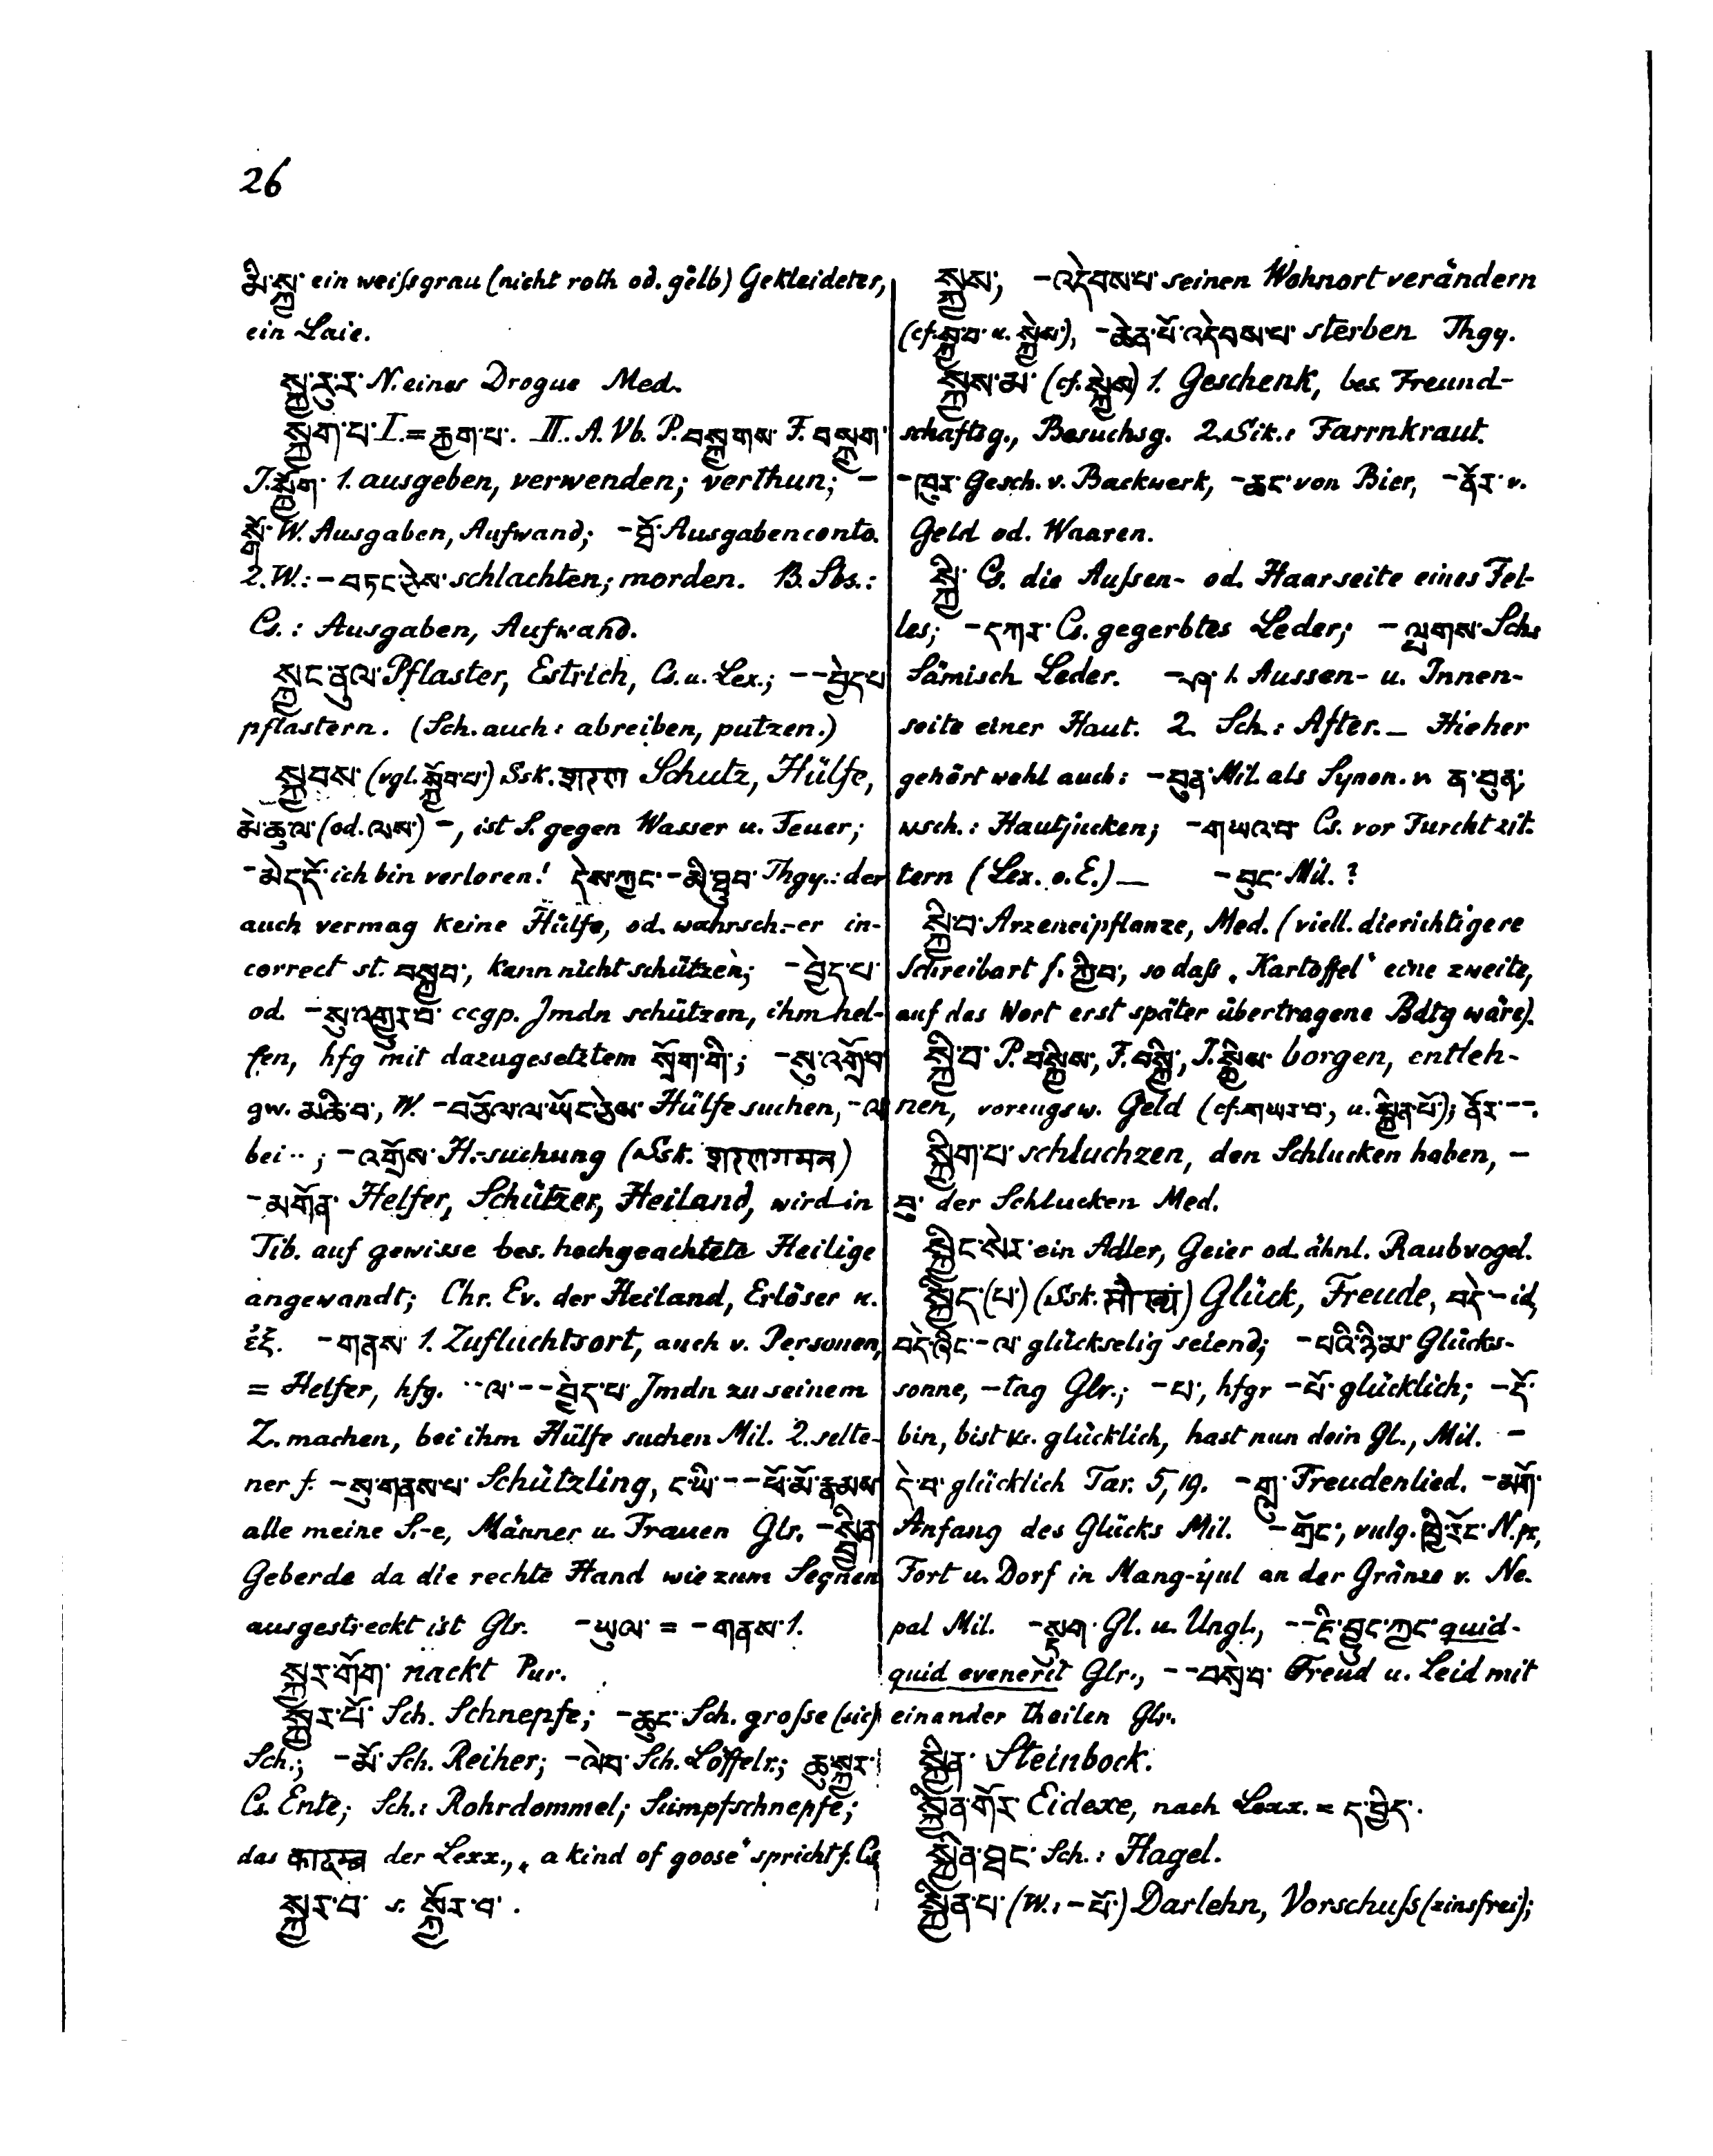 26
མི་སྐྱ་ ein weiſsgrau (nicht roth od. gelb) Gekleideter,
ein Laie.
སྐྱ་རུ་ར་ N. eines Drogue Med.
སྐྱག་པ་ I. = རྐྱག་པ་. II. A. Vb. P. བསྐྱགས་ F. བསྐྱག་
J. སྐྱོག་ 1. ausgeben, verwenden; verthun; –
སྒོ་ W. Ausgaben, Aufwand; –ཐོ་ Ausgabenconto.
2. W.: –བཏང་ཅེས་ schlachten; morden. B. Sbs.:
Cs.: Ausgaben, Aufwand.
སྐྱང་ནུལ་ Pflaster, Estrich, Cs. u. Lex.; ––བྱེད་པ
pflastern. (Sch. auch: abreiben, putzen.)
སྐྱབས་ (vgl. སྐྱོབ་པ་) Ssk. शरण Schutz, Hülfe,
མེ་ཆུ་ལ་ (od. ལས་) –, ist S. gegen Wasser u. Feuer;
–མེད་དོ་ ich bin verloren! དེས་ཀྱང་–མི་ཐུབ་ Thgy.: der
auch vermag keine Hülfe, od. wahrsch.-er in-
correct st. བསྐྱབ་, kann nicht schützen; –བྱེད་པ་
od. –སུ་འགྱུར་བ་ ccgp. Jmdn schützen, ihm hel-
fen, hfg mit dazugesetztem སྲོག་གི་; –སུ་འགྲོ་བ
gw. མཆི་བ་, W. –བཅོལ་ལ་ཡོང་ཅེས་ Hülfe suchen, –ལ
bei ··; –འགྲོས་ H.-suchung (Ssk. शरणगमन)
–མགོན་ Helfer, Schützer, Heiland, wird in
Tib. auf gewisse bes. hochgeachtete Heilige
angewandt; Chr. Ev. der Heiland, Erlöser κ.
ἐξ. –གནས་ 1. Zufluchtsort, auch v. Personen,
= Helfer, hfg. ··ལ་––བྱེད་པ་ Jmdn zu seinem
Z. machen, bei ihm Hülfe suchen Mil. 2. selte-
ner f. –སུ་གནས་པ་ Schützling, ང་ཡི་––ཕོ་མོ་རྣམས
alle meine S.-e, Männer u. Frauen Glr. –སྦྱིན
Geberde da die rechte Hand wie zum Segnen
ausgestreckt ist Glr. –ཡུལ་ = –གནས་ 1.
སྐྱར་གོག་ nackt Pur.
སྐྱར་པོ་ Sch. Schnepfe; –ཆུང་ Sch. groſse (sic)
Sch.; –མོ་ Sch. Reiher; –ལེབ་ Sch. Löffelr.; ཆུ་སྐྱར་
Cs. Ente; Sch.: Rohrdommel; Sumpfschnepfe;
das कादम्ब der Lexx., „a kind of goose“ spricht f. Cs
སྐྱར་བ་ s. སྐྱོར་བ་.
སྐྱས་, –འདེབས་པ་ seinen Wohnort verändern
(cf. སྐྱ་བ་ u. སྐྱེས་), –ཆེན་པོ་འདེབས་པ་ sterben Thgy.
སྐྱས་མ་ (cf. སྐྱེས) 1. Geschenk, bes. Freund-
schaftsg., Besuchsg. 2. Sik.: Farrnkraut.
–ཁུར་ Gesch. v. Backwerk, –ཆང་ von Bier, –ནོར་ v.
Geld od. Waaren.
སྐྱི་ Cs. die Auſsen- od. Haarseite eines Fel-
les; –དཀར་ Cs. gegerbtes Leder; –ལྤགས་ Sch.:
Sämisch Leder. –ཤ་ 1. Aussen- u. Innen-
seite einer Haut. 2. Sch.: After. – Hieher
gehört wohl auch: –བུན་ Mil. als Synon. v. ན་བུན་;
wsch.: Hautjucken; –གཡའ་བ་ Cs. vor Furcht zit-
tern (Lex. o. E.) – –བུང་ Mil.?
སྐྱི་བ་ Arzeneipflanze, Med. (viell. die richtigere
Schreibart f. ཀྱིབ་, so daſs „Kartoffel“ eine zweite,
auf das Wort erst später übertragene Bdtg wäre).
སྐྱི་བ་ P. བསྐྱིས་, F. བསྐྱི་, J. སྐྱིས་ borgen, entleh-
nen, vorzugsw. Geld (cf. གཡར་བ་, u. སྐྱིན་པོ་); ནོར་––.
སྐྱིག་པ་ schluchzen, den Schlucken haben, –
བུ་ der Schlucken Med.
སྐྱིང་སེར་ ein Adler, Geier od. ähnl. Raubvogel.
སྐྱིད་(པ་) (Ssk. सौख्यं) Glück, Freude, བདེ་– id,
བདེ་ཞིང་–ལ་ glückselig seiend; –པའི་ཉི་མ་ Glücks-
sonne, –tag Glr.; –པ་, hfgr –པོ་ glücklich; –དོ་
bin, bist κ. glücklich, hast nun dein Gl., Mil. –
དེ་བ་ glücklich Tar. 5, 19. –གླུ་ Freudenlied. –མགོ་
Anfang des Glücks Mil. –གྲོང་, vulg. ཁྱི་རོང་ N. pr.,
Fort u. Dorf in Mang-yul an der Gränze v. Ne-
pal Mil. –སྡུག་ Gl. u. Ungl., ––ཇི་བྱུང་ཀྱང་ quid-
quid evenerit Glr., ––བསྲེ་བ་ Freud u. Leid mit
einander theilen Glr.
སྐྱིན་ Steinbock.
སྐྱིན་གོར་ Eidexe, nach Lexx. = ད་བྱིད་.
སྐྱིན་ཐང་ Sch.: Hagel.
སྐྱིན་པ་ (W.: –པོ་) Darlehn, Vorschuſs (zinsfrei);